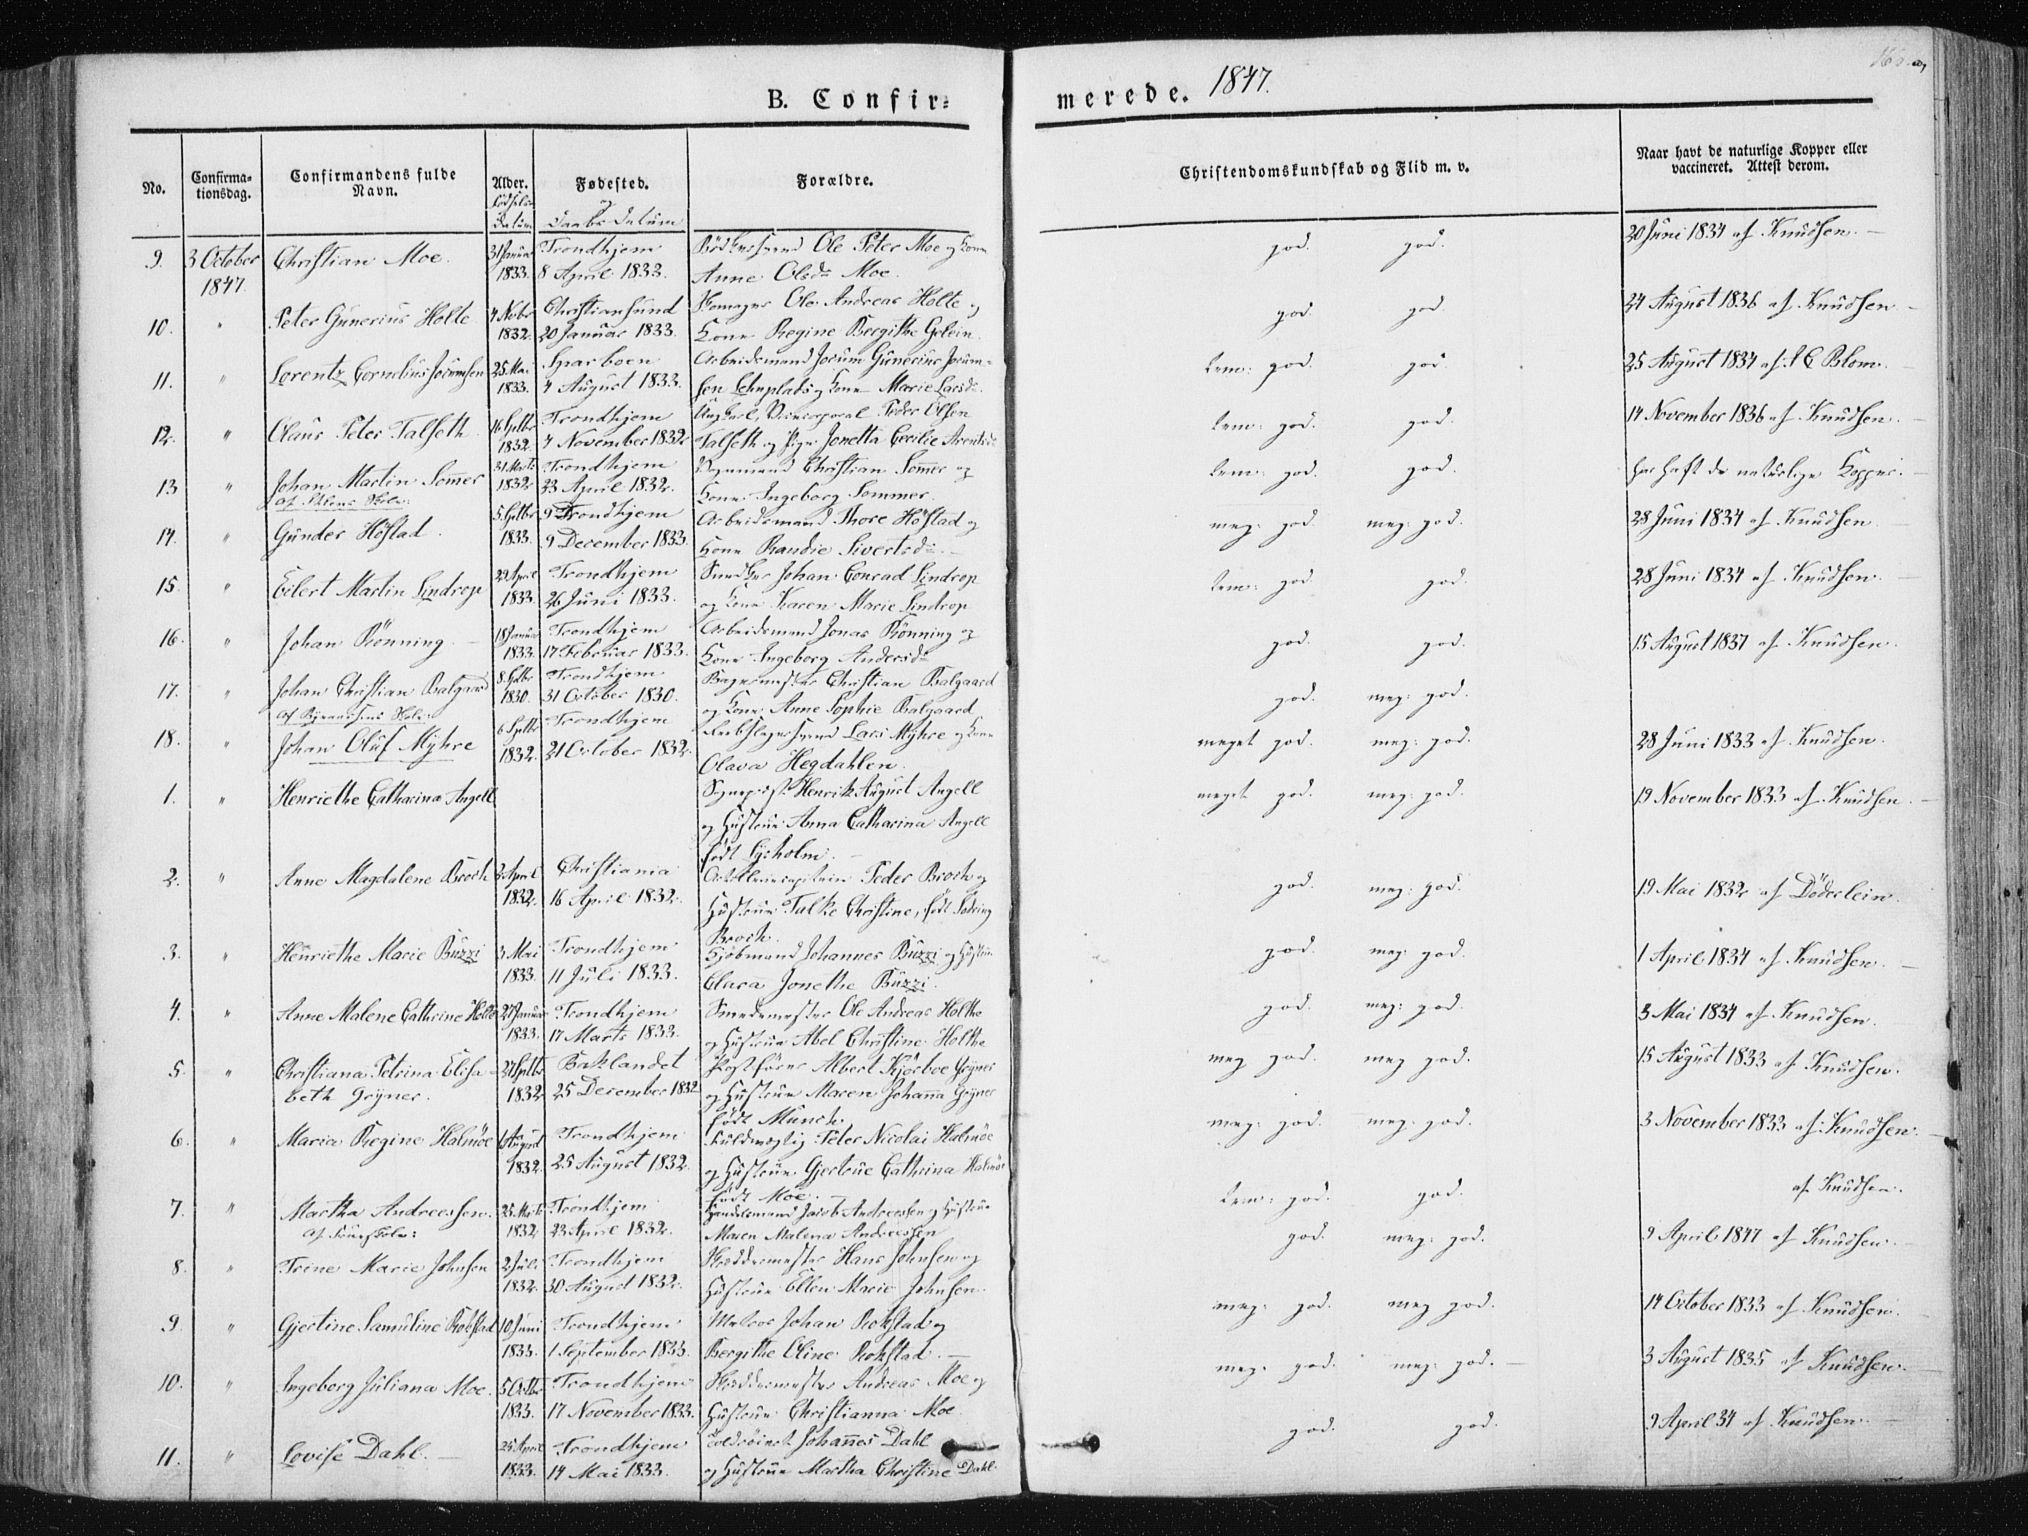 B. Confir=
merede. 1847.
No.
Confirma-
tionsdag.
Confirmandens fulde
Navn.
Alder.
Fødselse
Datum
Fødested.
og
Daabs Datum
Forældre.
Christendomskundskab og Flid m. v.
Naar havt de naturlige Kopper eller
vaccineret. Attest derom.
9. 3 October Christian Moe. 31 Januar Trondhjem Ole Peter Moe og Kone god. god. 20 Juni 1834 af Knudsen.
1847. 1833. 8 April 1833. Anne Olsdr Moe.
10. " Peter Gunerius Holte 4 Novbr Christiansund Ole Andreas Holte og god. god. 24 August 1836 af Knudsen
1832. 20 Januar 1833. Kone Regine Bergithe
11. " Lorentz Cornelius Jocumsen 25 Mai Sparboen Arbeidsmand Jocum Gunerius Jocum= tem: god. god. 25 August 1834 af Blom.
1833. 4 August 1833. sen og Kone Marie Larsdr
12. " Olaus Peter Talseth 16 Septbr Trondhjem Peder Olsen tem: god. god. 14 November 1836 af Knudsen.
1832. 4 November 1832 Talseth og Pige Jonetta Cecilie
13 " Johan Martin Sommer 31 Marts Trondhjem Vognmand Christian Sommer og tem: god. god. har haft de naturlige Kopper.
1832 23 April 1832. Kone Ingeborg Sommer.
14. " Gunder Høstad. 5 Septbr Trondhjem Arbeidsmand Thore Høstad og meg: god. meg: god. 28 Juni 1834 af Knudsen
1833. 9 December 1833. Kone Randie Sivertsdr
15. " Eilert Martin Lindrop 29 April Trondhjem Johan Conrad Lindrop tem: god. god. 28 Juni 1834 af Knudsen.
1833. 26 Juni 1833. og Kone Karen Marie Lindrop
16. " Johan Rønning. 18 Januar Trondhjem Arbeidsmand Jonas Rønning og god. god. 15 August 1837 af Knudsen.
1833. 17 Februar 1833. Kone Ingeborg Andersdr
17. " Johan Christian Balgaard 8 Septbr Trondhjem Bagermester Christian Balgaard god. meg: god.
1830 31 October 1830. og Kone Anne Sophie Balgaard
18. " Johan Oluf Myhre 6 Septbr Trondhjem Lars Myhre og Kone meget god. meg: god. 28 Juni 1833 af Knudsen.
1832. 21 October 1832. Olava Hegdahlen.
1. " Henriethe Catharina Angell Henrik August Angell meget god. meg: god. 19 November 1833 af Knudsen.
og Hustrue Anna Catharina Angell
født Lysholm.
2. " Anne Magdalene Broch 2 April Christiania Peder Broch og god. meg: god. 19 Mai 1832 af Döderlein.
1832. 16 April 1832. Hustrue Christine, født
Broch.
3. " Henriethe Marie Buzzi 3 Mai Trondhjem Kjøbmand Johannes Buzzi og Hustrue god. meg: god. 1 April 1834 af Knudsen.
1833. 11 Juli 1833. Clara Jonethe Buzzi.
4. " Anne Malene Cathrine Holte 27 Januar Trondhjem Smedemester Ole Andreas Holthe god. meg: god. 3 Mai 1834 af Knudsen.
1833. 17 Marts 1833. og Hustrue Abel Christine Holthe
5. " Christiana Petrina Elisa= 27 Septbr Baklandet Albert Kjørboe Gryner meg god. meg god. 15 August 1833 af Knudsen.
beth Gryner. 1832 25 December 1832 og Hustrue Maren Johanna Gryner
født Munch.
6. " Maria Regine Halmøe 6 August Trondhjem Fuldmægtig Peter Nicolai Halmøe meg: god. meg: god. 3 November 1833 af Knudsen.
1832. 25 August 1832. og Hustrue Gjertrue Cathrina Halmøe
født Moe.
7. " Martha Andreessen. 25 Marts Trondhjem Handelsmand Jacob Andreessen og Hustrue tem: god. god. af Knudsen.
1832 23 April 1832. Maren Malena Andreessen
8. " Trine Marie Johnsen 2 Juli Trondhjem Skræddermester Hans Johnsen og god. meg: god. 9 April 1847 af Knudsen.
1832. 30 August 1832. Hustrue Ellen Marie Johnsen.
9 " Gjertine Samuline Rokstad 10 Juni Trondhjem Johan Rokstad og meg: god. meg god. 14 October 1833 af Knudsen.
1833. 1 September 1833. Bergithe Eline Rokstad.
10. " Ingeborg Juliana Moe. 5 Octbr Trondhjem Skræddermester Andreas Moe og meg. god. meg: god. 3 August 1835 af Knudsen.
1833. 17 November 1833. Hustrue Christianna Moe.
11. " Lovise Dahl. 25 April Trondhjem Johannes Dahl god. god. 9 April 34 af Knudsen.
1833. 14 Mai 1833. og Hustrue Martha Christine Dahl.